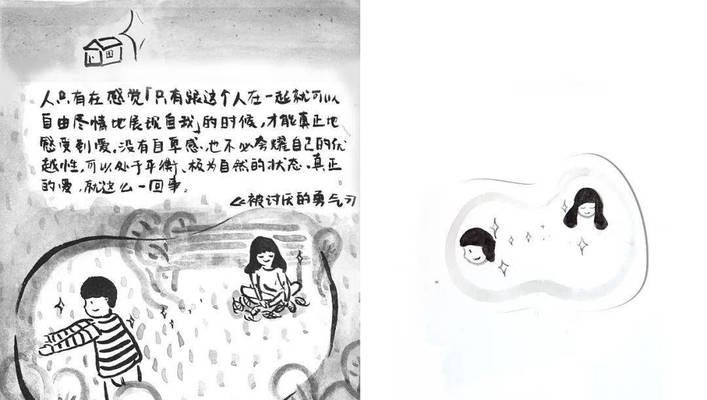 人只有在感觉「只有跟这个人在一起就可以
自由尽情地展现自我」的时候，才能真正地
感受到爱。没有自卑感，也不必夸耀自己的优
越性，可以处于平衡、极为自然的状态。真正
的爱，就这么一回事。
《被讨厌的勇气》